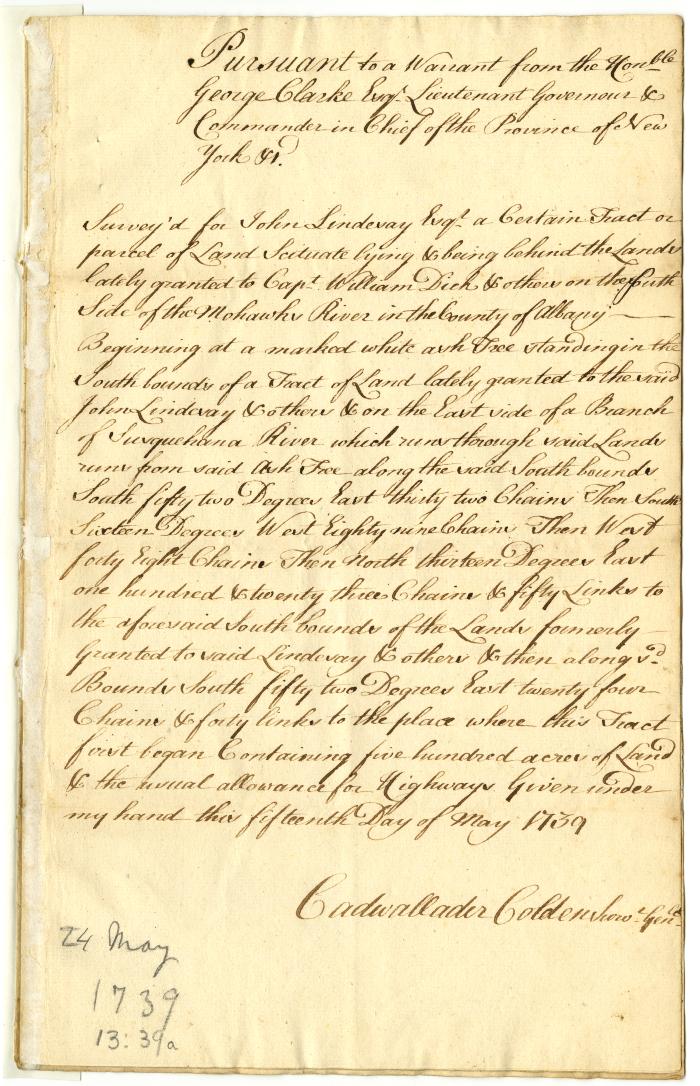 Pursuant to a Warrant from the Honble
George Clarke Esqr. Lieutenant Governour &
Commander in Chief of the Province of New
York &c.
Survey'd for John Lindesay Esqr. a Certain Tract or
parcel of Land Scituate lying & being behind the Lands
lately granted to Capt. William Dick & others on the South
Side of the Mohawks River in the County of Albany
Beginning at a marked white ash Tree standing in the
South bounds of a Tract of Land lately granted to the said
John Lindesay & others & on the East side of a Branch
of Susquehana River which runs through said Lands
runs from said Ash Tree along the said South bounds
South fifty two Degrees East thirty two Chains Then South
Sixteen Degrees West Eighty nine Chains Then West
forty Eight Chains Then North thirteen Degrees East
one hundred & twenty three Chains & fifty Links to
the aforesaid South bounds of the Lands formerly
Granted to said Lindesay & others & then along sd.
Bounds South fifty two Degrees East twenty four
Chains & forty links to the place where this Tract
first began Containing five hundred acres of Land
& the usual allowance for Highways Given under
my hand this fifteenth Day of May 1739
Cadwallader Colden Survr. Genl.
24 May
1739
13:39a